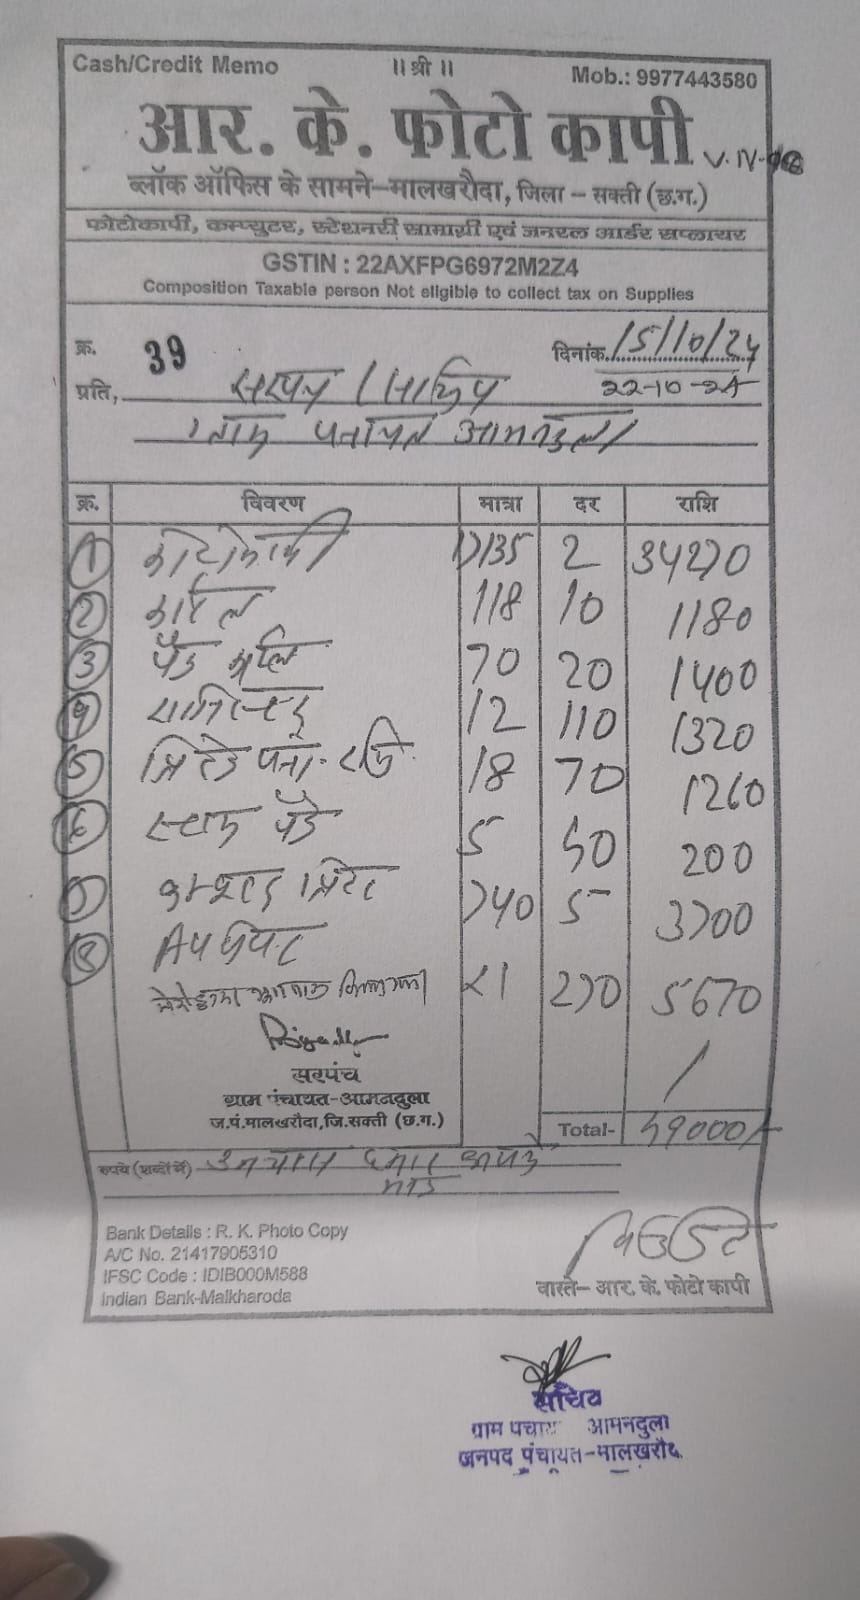 Cash/Credit Memo ॥ श्री ॥ Mob.: 9977443580
आर. के. फोटो कापी
V. IV-
ब्लॉक ऑफिस के सामने-मालखरौदा, जिला - सक्ती (छ.ग.)
फोटोकापी, कम्प्युटर, स्टेशनरी सामाग्री एवं जनरल आर्डर सप्लायर
GSTIN : 22AXFPG6972M2Z4
Composition Taxable person Not eligible to collect tax on Supplies
क्र. 39 दिनांक. 15/10/24
प्रति, सरपंच / सचिव 22-10-24
ग्राम पंचायत आमनदुला
क्र. विवरण मात्रा दर राशि
1 फोटोकापी 17135 2 34270
2 फाईल 118 10 1180
3 पैड फाईल 70 20 1400
4 12 110 1320
5 प्रिंटेड पंजी 18 70 1260
6 स्टाम्प पैड 5 40 200
7 कम्प्यूटर प्रिंट 740 5 3700
8
21 270 5670
सरपंच
ग्राम पंचायत-आमनदुला
ज.पं.मालखरौदा, जि.सक्ती (छ.ग.)
Total- 49000/-
रुपये (शब्दों में) उनचास हजार रूपये
मात्र
Bank Details : R. K. Photo Copy
A/C No. 21417905310
IFSC Code : IDIB000M588
Indian Bank-Malkharoda
वास्ते- आर. के. फोटो कापी
सचिव
ग्राम पंचाय आमनदुला
जनपद पंचायत-मालखरौद